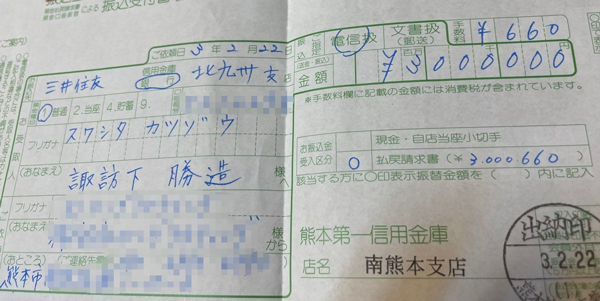 ご案内
による 振込受付書
ご依頼日 3年 2月 22日
三井住友
信用金庫
銀行
北九州 支店
振込指定
電信扱
文書扱
(郵送)
手数料
¥660
金額
¥3000000
※手数料欄に記載の金額には消費税が含まれています。
お受取人
①普通 2.当座 4.貯蓄 9.
フリガナ
スワシタ カツゾウ
(おなまえ)
諏訪下 勝造 様
へ
フリガナ
(おなまえ)
様
から
(おところ)
ご連絡先
熊本市
お振込金
受入区分
現金・自店当座小切手
0
払戻請求書(¥3,000,660)
該当する方に○印表示振替金額を( )内に記入
熊本第一信用金庫
店名 南熊本支店
出納印
3.2.22